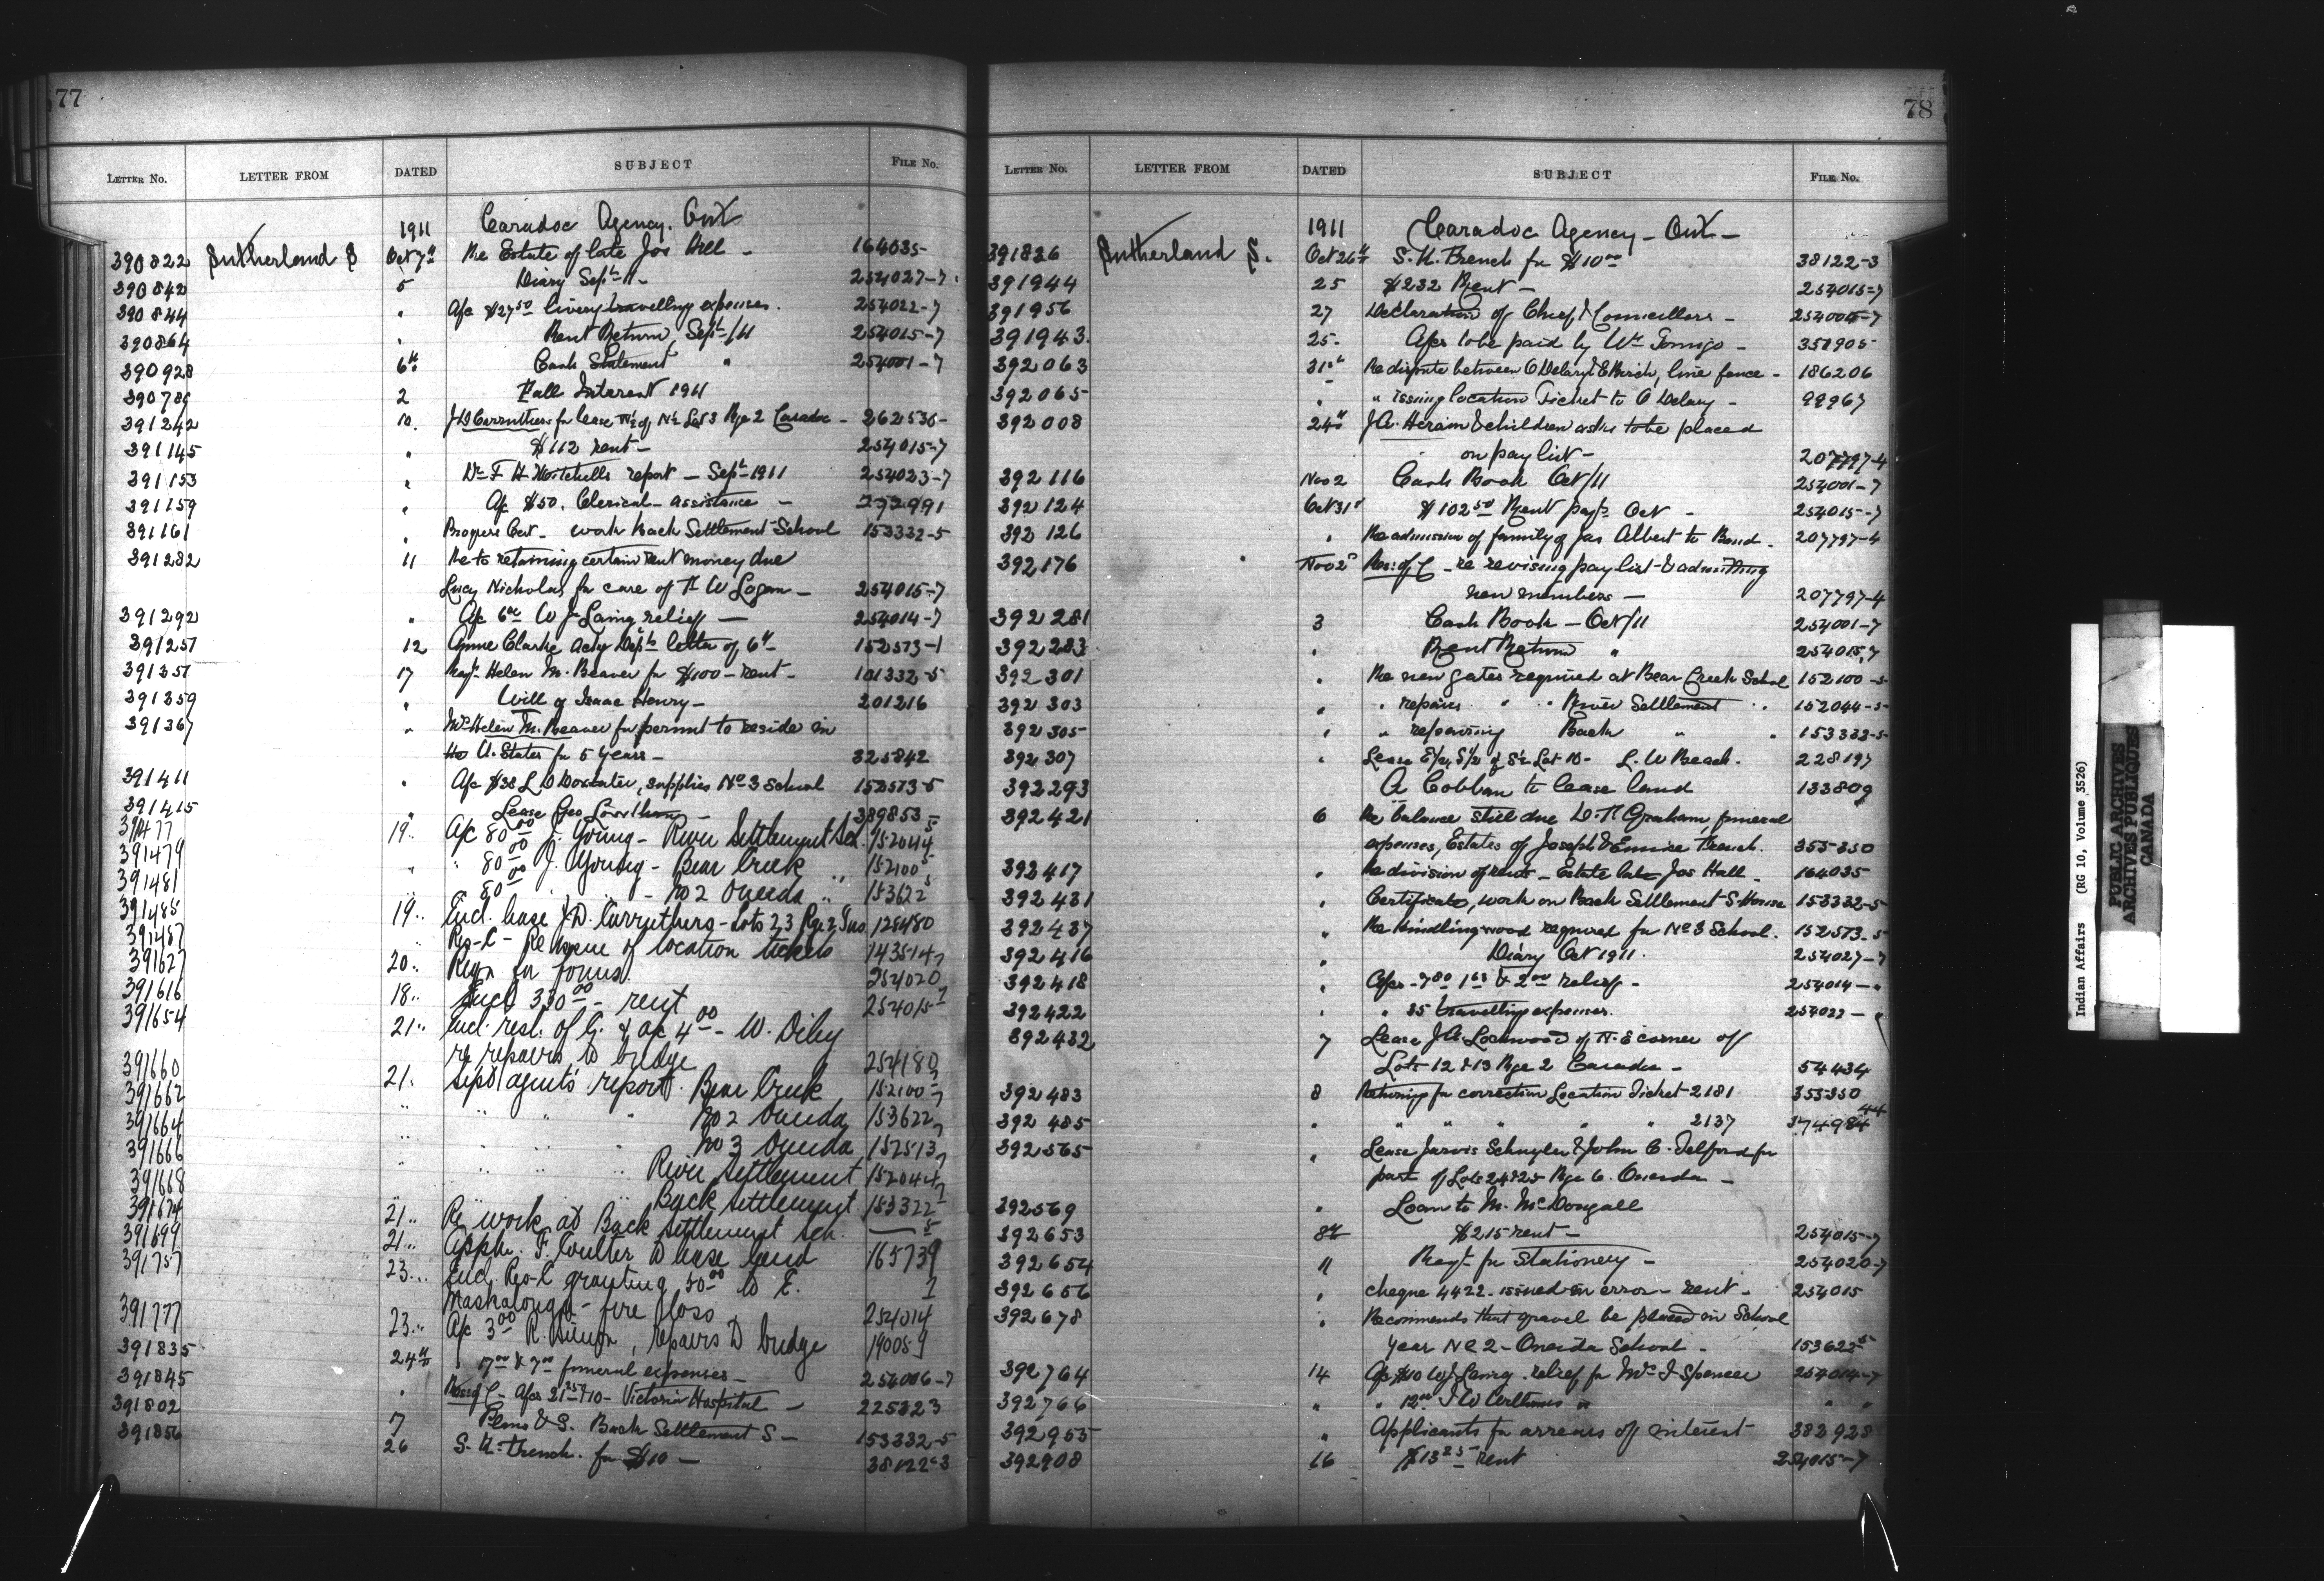 77
LETTER No. LETTER FROM DATED SUBJECT FILE No.
1911 Caradoc Agency. Ont
390822 Sutherland S Oct 7th Re Estate of late Jos Hill - 164035-
390842 5 Diary Sept 11- 254027-7
390844 " A/c $27 50 livery travelling expenses. 254022-7
390864 " Rent Return, Sept/11 254015-7
390928 6th Cash Statement " 254001-7
390789 2 Fall Interest 1911
391242 10. J D Carruthers for lease N½ of N½ Lot 3 Rge 2 Caradoc - 262536-
391145 " $112 rent - 254015-7
391153 " Dr F H Mitchells report - Sept 1911 254023-7
391159 " A/c $50. Clerical assistance - 272991
391161 " Progress Cert. work Back Settlement School 153332-5
391282 11 Re to retaining certain rent money due
Lucy Nicholas for care of W Logan - 254015-7
391292 " A/c 6 00 W J Laing relief - 254014-7
391251 12 Annie Clarke ackg Dept letter of 6th 152573-1
391351 17 Reqt Helen M. Beaver for $100 - rent - 101332-5
391359 " Will of Isaac Henry - 201216
391367 " Mrs Helen M. Beaver for permit to reside in
the U. States for 5 years - 325842
391411 " A/c $38 L D supplies No 3 School 152573-5
391415 " Lease Geo Lowthian - 389853-
391477 19.. A/c 80 00 J. Young - River Settlement Sch. 152044 5
391479 " 80 00 J. Young - Bear Creek " 152100 5
391481 80 00 " - No 2 Oneida " 153622 5
391485 19.. Encl. lease J. D. Carruthers - Lots 2, 3 Rge 2, 125480
391487 Res-C - Re issue of location tickets 143514
391627 20.. Reqn for forms. 254020 7
391616 18.. Encl 330 00 - rent 254015 7
391654 21.. Encl. resl. of C. & a/c 4 00 - W.
re repairs to bridge 254180
391660 21. Sept agent's report. Bear Creek 152100-7
391662 " " " " No 2 Oneida 153622 7
391664 " " " " No 3 Oneida 152573 7
391666 " " " " River Settlement 152044 7
391668 Back Settlement 153322 7
391674 21.. Re work at Back Settlement Sch. — 5
391699 21.. Appln. F. Coulter to lease land 165739
391757 23... Encl. Res-C granting 50 00 to E.
- fire loss 254014 7
391777 23.. A/c 3 00 R. , repairs to bridge 19005
391835 24th " 17 00 & 7 00 funeral expenses - 254006-7
391845 " Res of C - A/cs 21 25 & 10 - Victoria Hospital - 225323
391802 7 Plans & S. Back Settlement S - 153332-5
391856 26 S. K. French. for $10 - 38122-3
78
LETTER No. LETTER FROM DATED SUBJECT FILE No.
1911 Caradoc Agency - Ont -
391826 Sutherland S. Oct 26th S. K. French for $10 00 38122-3
391944 25 $232 Rent - 254015-7
391956 27 Declaration of Chief & Councillors - 254004-7
391943. 25- A/cs to be paid by Wm Tomigo - 351905-
392063 31st Re dispute between O Delary & E Burch, line fence - 186206
392065- " " issuing location Ticket to O Delary - 99967
392008 24th J. A. Heram & children asks to be placed
on pay list - 207797-4
392116 Nov 2 Cash Book Oct/11 254001-7
392124 Oct 31st $102 50 Rent pays Oct - 254015-7
392126 " Re admission of family of Jas Albert to Band. 207797-4
392176 Nov 2nd Res: of C - re revising pay list & admitting
new members - 207797-4
392281 3 Cash Book - Oct/11 254001-7
392283 " Rent Return " 254015,7
392301 " Re new gates required at Bear Creek School 152100-5-
392303 " " repairs " " River Settlement " 152044-5-
392305- " " repairing Back " " 153332-5-
392307 " Lease E½, S½ of S½ Lot 10- L. W Beach. 228197
392293 A Cobban to lease land 133809
392421 6 Re balance still due D. N Graham, funeral
expenses, Estates of Joseph & Eunice French. 355350
392417 " Re division of rents - Estate late Jos Hall. 164035
392431 " Certificate, work on Back Settlement S. House 153332-5
392437 " Re kindling wood required for No 3 School. 152573-5
392416 " Diary Oct 1911. 254027-7
392418 " A/cs - 7 80 1 63 & 2 00 relief - 254014 - "
392422 " " 35 travelling expenses. 254022 - "
392432 7 Lease J. A. Lockwood of N. E corner of
Lots 12 & 13 Rge 2 Caradoc - 54434
392483 8 Returning for correction Location Ticket 2181 355350
392485- " " " " " 2137 374984 44
392565- " Lease Jarvis Schuyler & John C. Telford for
part of Lots 24 & 25 Rge 6. Oneida -
392569 " Loan to M. McDougall
392653 8th $215 rent - 254015-7
392654 11 Reqt for Stationery - 254020-7
392656 " cheque 4422 issued in error - rent - 254015
392678 " Recommends that gravel be placed in School
Year No 2 - Oneida School - 153622 5-
392764 14 A/c $10 W J Laing relief for Mrs I Spencer 254014-7
392766 " " 12 00 J W " " "
392955 " Applicants for arrears of interest 382928
392908 16 $13 25 rent 254015-7
Indian Affairs (RG 10, Volume 3526)
PUBLIC ARCHIVES
ARCHIVES PUBLIQUES
CANADA